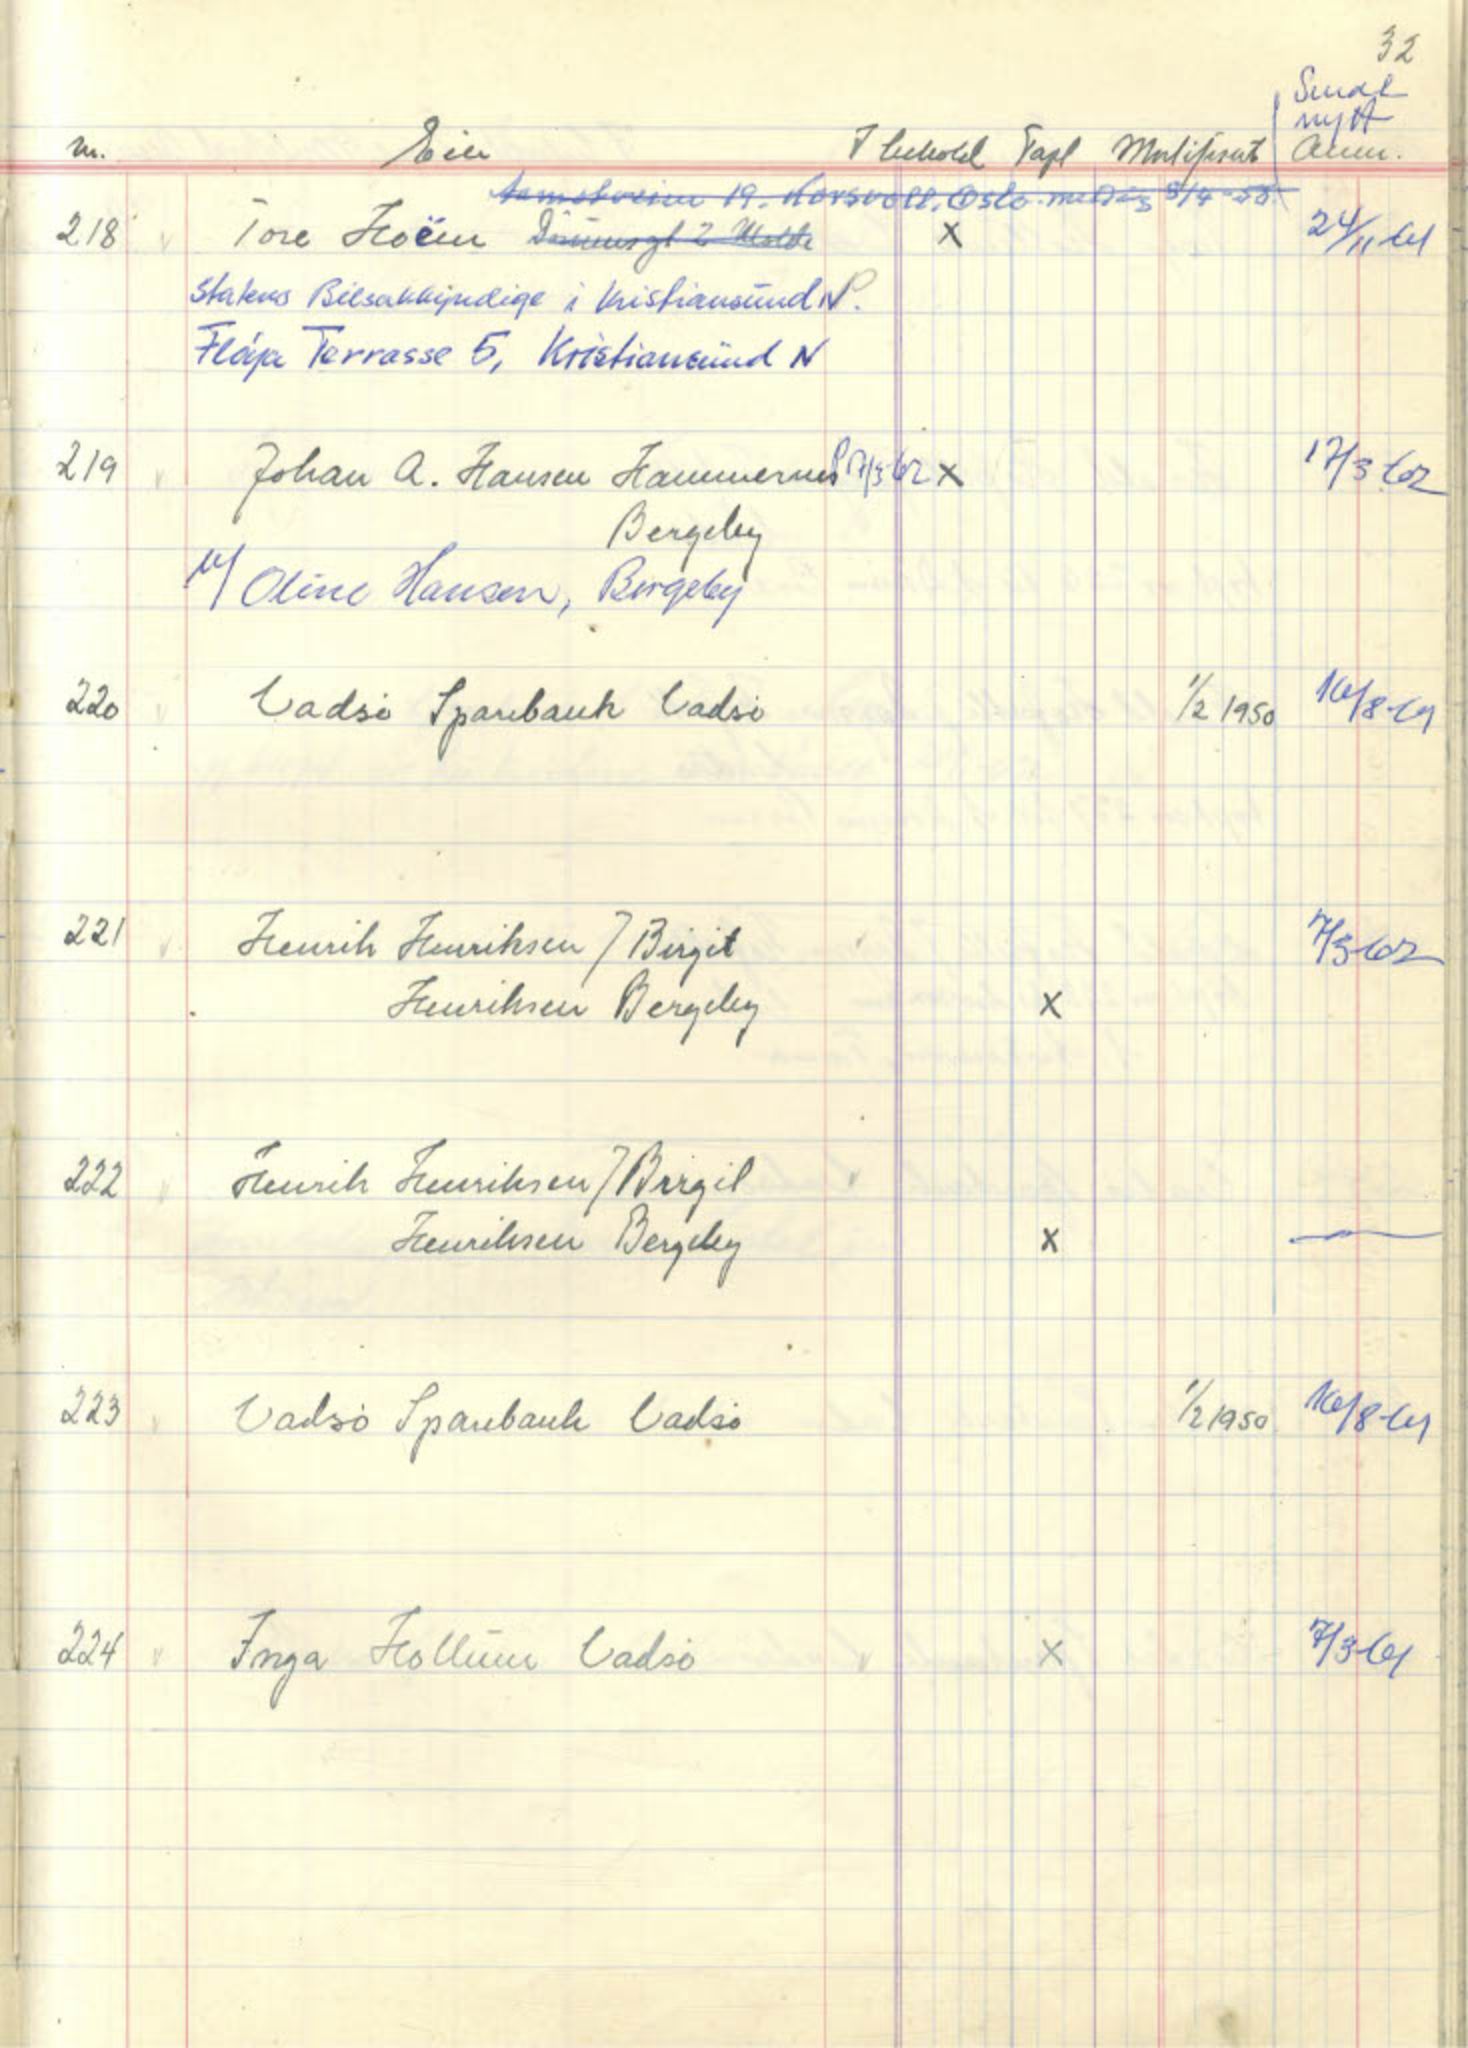 32
Sendt
nytt
nr. Eier I behold Tapt Mortifisert Anm.
19. Korsvoll. Oslo. 8/4-58
218 Tore Hoëm 2 Molde x 24/11-61
Statens Bilsakkyndige i Kristiansund N.
Fløya Terrasse 5, Kristiansund N
219 Johan A. Hansen Hammernes 17/3-62 x 17/3-62
Bergeby
v/ Oline Hansen, Bergeby
220 Vadsø Sparebank Vadsø 1/2 1950 16/8-61
221 Henrik Henriksen / Birgit 7/3-62
Henriksen Bergeby x
222 Henrik Henriksen / Birgit
Henriksen Bergeby x —
223 Vadsø Sparebank Vadsø 1/2 1950 16/8-61
224 Inga Hollum Vadsø x 7/3-61